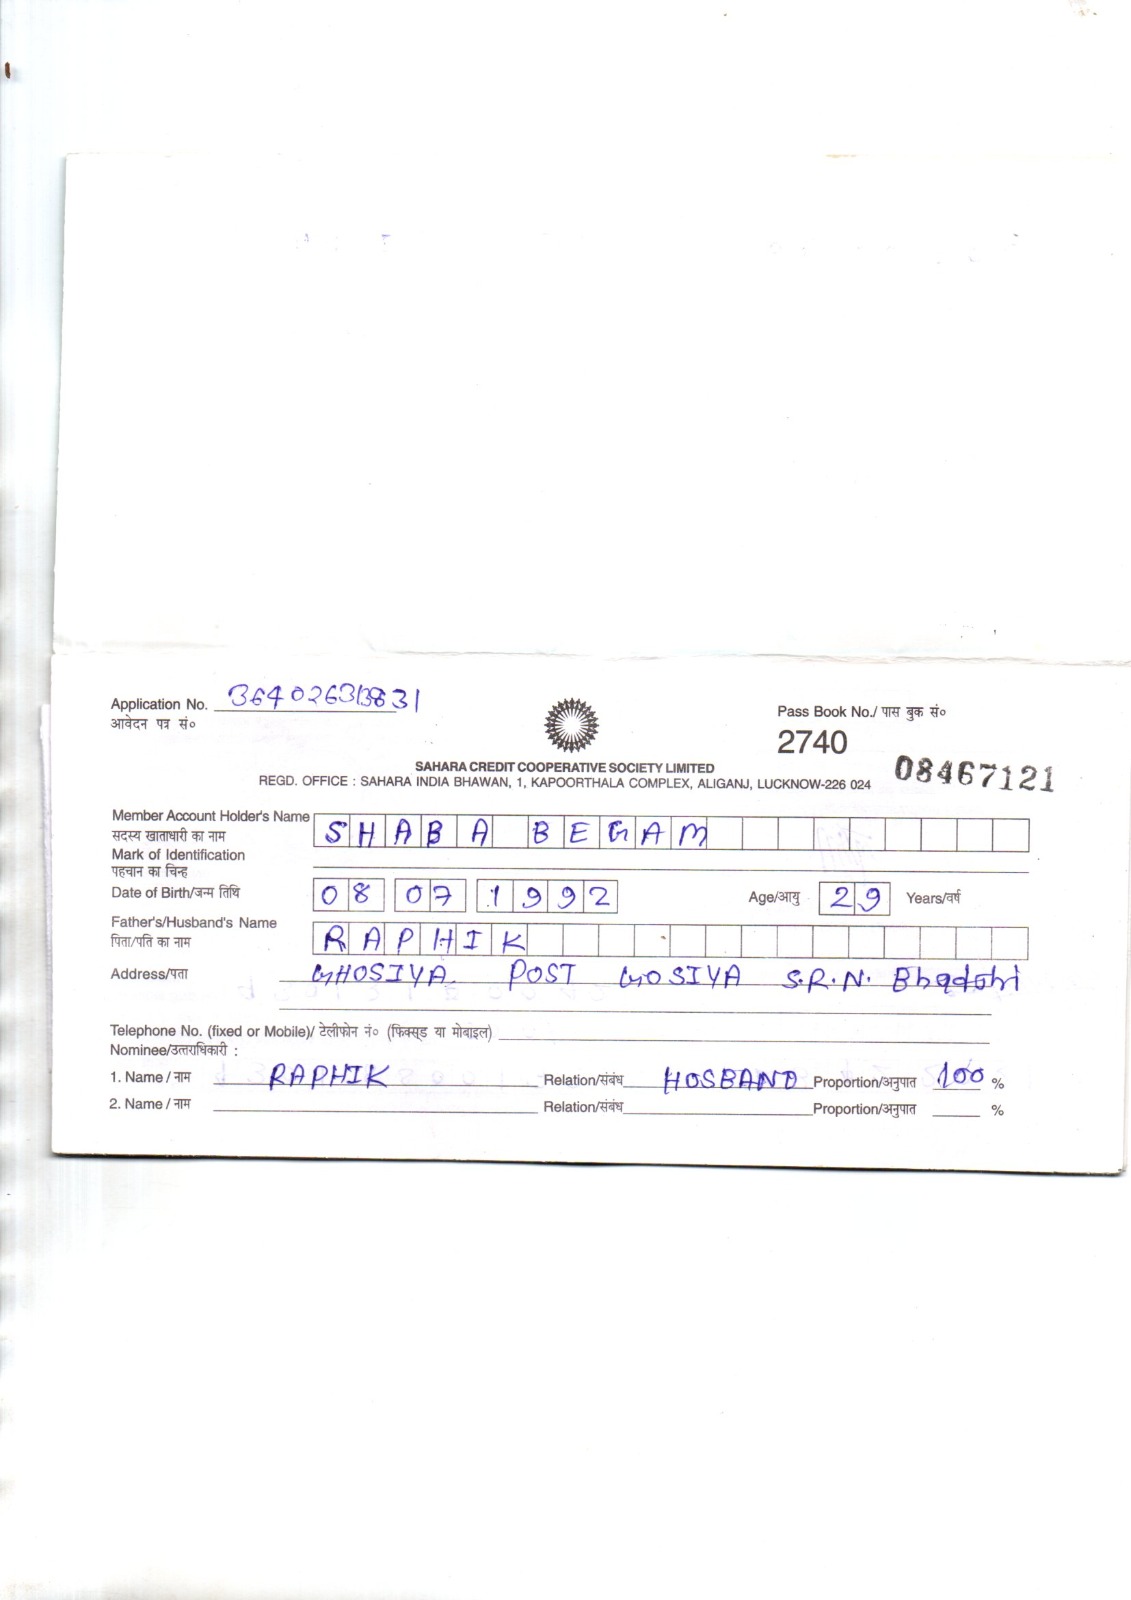 Application No. 
आवेदन पत्र सं०
Pass Book No./ पास बुक सं०
2740 08467121
SAHARA CREDIT COOPERATIVE SOCIETY LIMITED
REGD. OFFICE : SAHARA INDIA BHAWAN, 1, KAPOORTHALA COMPLEX, ALIGANJ, LUCKNOW-226 024
Member Account Holder's Name SHABA BEGAM
सदस्य खाताधारी का नाम
Mark of Identification
पहचान का चिन्ह
Date of Birth/जन्म तिथि 08 07 1992 Age/आयु 29 Years/वर्ष
Father's/Husband's Name RAPHIK
पिता/पति का नाम
Address/पता GHOSIYA POST GOSIYA S.R.N. Bhadohi
Telephone No. (fixed or Mobile)/ टेलीफोन नं० (फिक्सूड या मोबाइल)
Nominee/उत्तराधिकारी :
1. Name / नाम RAPHIK Relation/संबंध HOSBAND Proportion/अनुपात 100 %
2. Name / नाम Relation/संबंध Proportion/अनुपात %